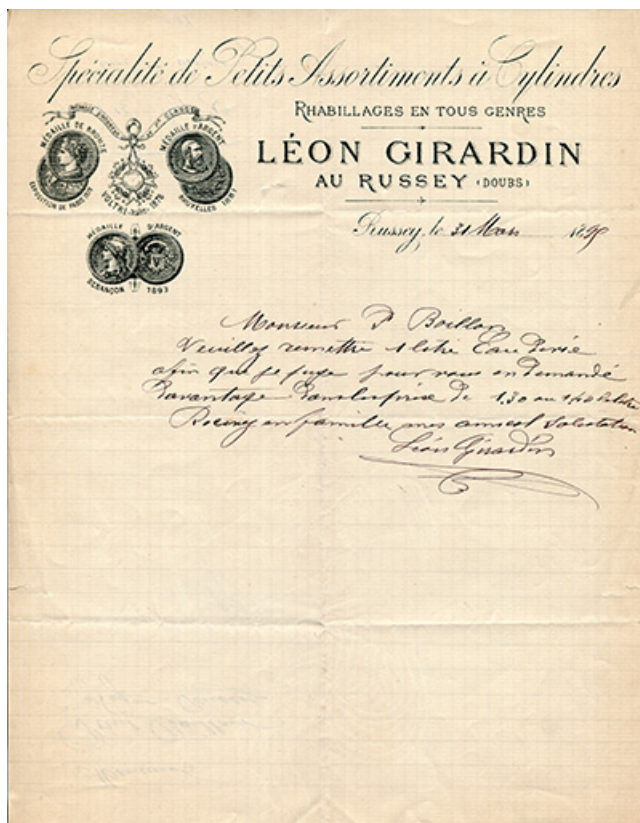 Spécialité de Petits Assortiments à Cylindres
RHABILLAGES EN TOUS GENRES
LÉON GIRARDIN
AU RUSSEY (DOUBS)
MÉDAILLE DE BRONZE
EXPOSITION DE PARIS
VOLTRI 1878
MÉDAILLE D'ARGENT
BRUXELLES
MÉDAILLE D'ARGENT
BESANÇON 1893
Russey, le 31 Mars 189
Monsieur P Boillon
Veuillez remettre 1 litre Eau de vie
afin que je puge pour vous en demandé
Davantage Dans les prix de 1.30 au
Recevez en famille mes amical Salutation
Léon Girardin